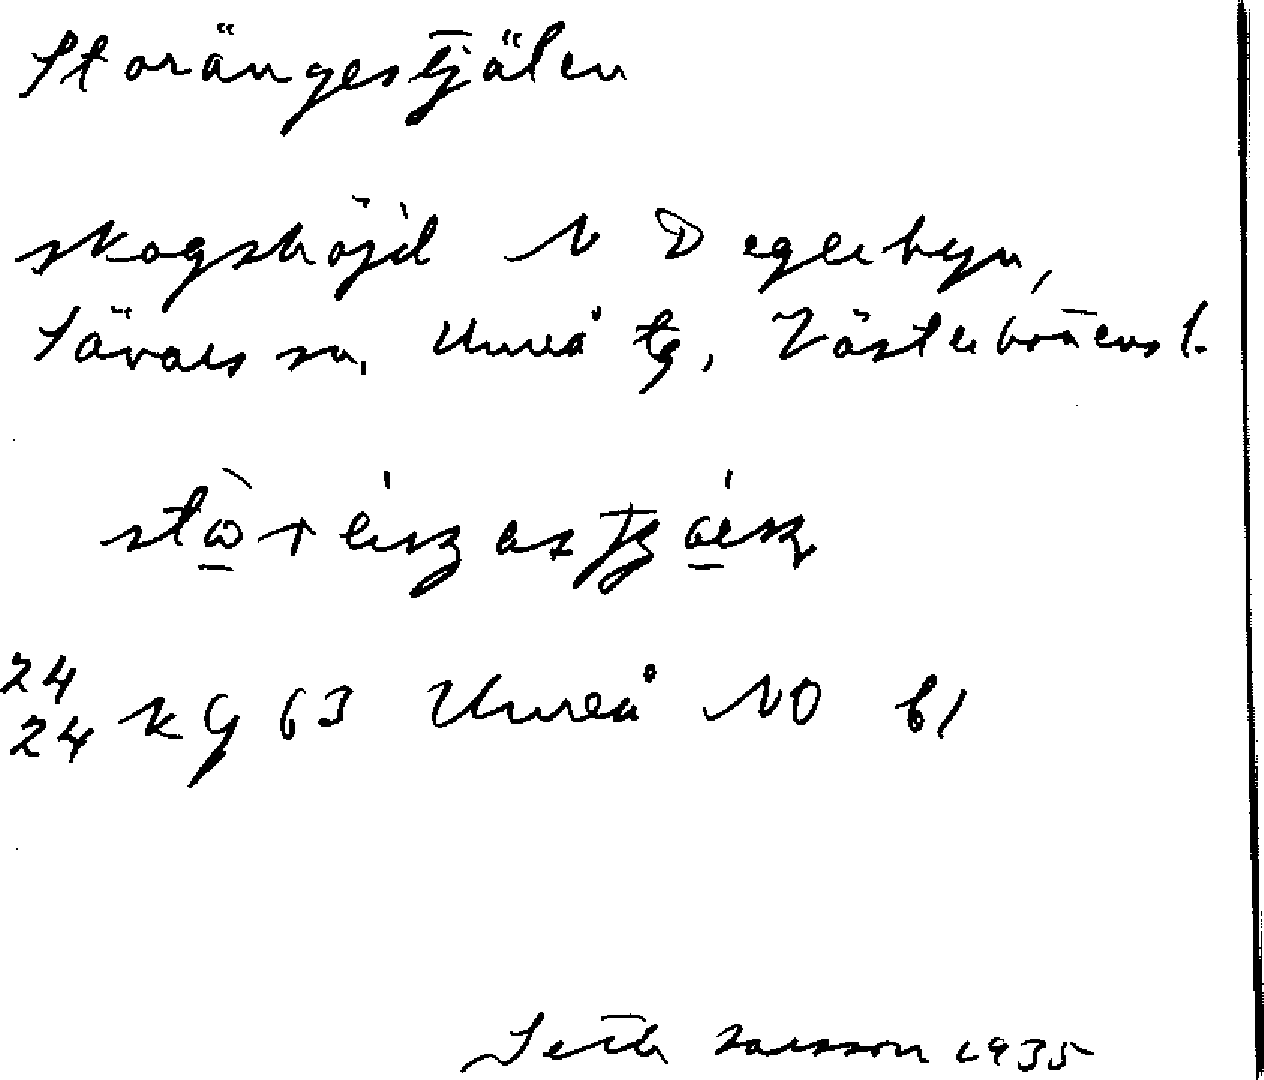 Storängestjälen
skogshöjd N Deglebyn,
Sävars sn, Umeå tg, Västerbottens l.
24
24 KG 63 Umeå NO b1
Seth Larsson 1935